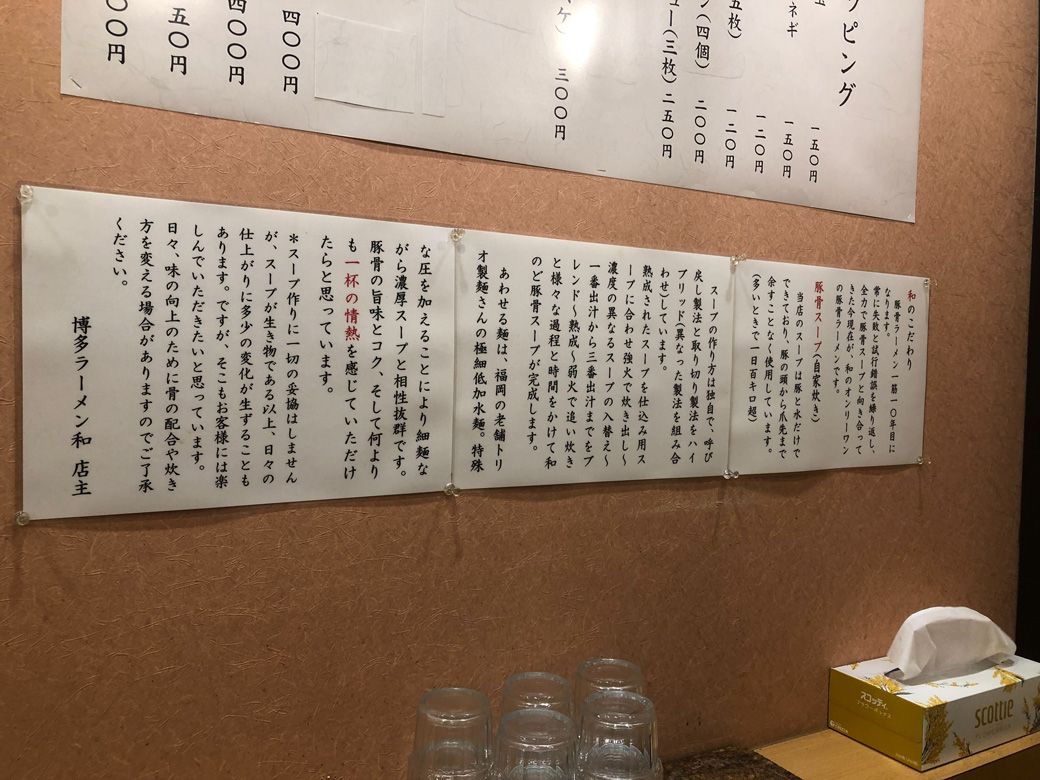 ッピング
一五〇円
ネギ
一五〇円
一二〇円
五枚)
一二〇円
ン(四個)
二〇〇円
ュー(三枚)二五〇円
ケ)
三〇〇円
四〇〇円
四〇〇円
五〇円
〇〇円
和のこだわり
豚骨ラーメン一筋一〇年目に
なります。
常に失敗と試行錯誤を繰り返し、
全力で豚骨スープと向き合って
きた今現在が、和のオンリーワン
の豚骨ラーメンです。
豚骨スープ(自家炊き)
当店のスープは豚と水だけで
できており、豚の頭から爪先まで
余すことなく使用しています。
(多いときで一日百キロ超)
スープの作り方は独自で、呼び
戻し製法と取り切り製法をハイ
ブリッド(異なった製法を組み合
わせ)しています。
熟成されたスープを仕込み用ス
ープに合わせ強火で炊き出し〜
濃度の異なるスープの入替え〜
一番出汁から三番出汁までをブ
レンド〜熟成〜弱火で追い炊き
と様々な過程と時間をかけて和
のど豚骨スープが完成します。
あわせる麺は、福岡の老舗トリ
オ製麺さんの極細低加水麺。特殊
な圧を加えることにより細麺な
がら濃厚スープと相性抜群です。
豚骨の旨味とコク、そして何より
も一杯の情熱を感じていただけ
たらと思っています。
*スープ作りに一切の妥協はしません
が、スープが生き物である以上、日々の
仕上がりに多少の変化が生ずることも
あります。ですが、そこもお客様には楽
しんでいただきたいと思っています。
日々、味の向上のために骨の配合や炊き
方を変える場合がありますのでご了承
ください。
博多ラーメン和 店主
スコッティ
フラワーボックス
scottie